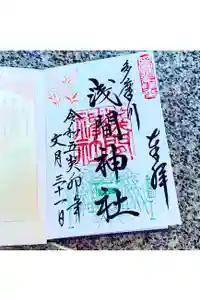 奉拝
多摩川
浅間神社
令和五癸卯年
文月三十一日